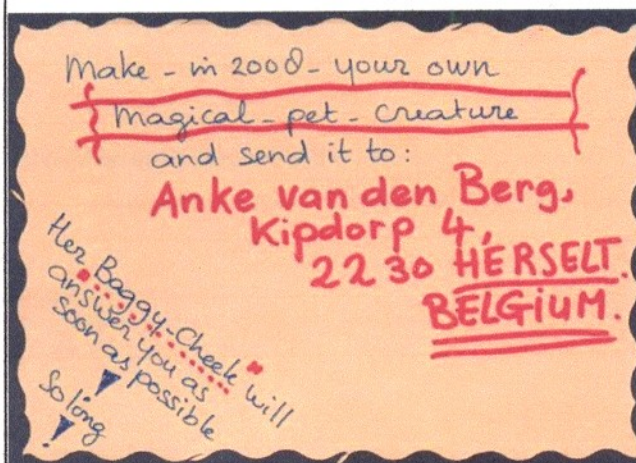 Make - in 2008 - your own
magical - pet - creature
and send it to:
Anke van den Berg,
Kipdorp 4,
2230 HERSELT.
BELGIUM.
Her Baggy-Cheek will
answer you as
soon as possible
!
So long
!